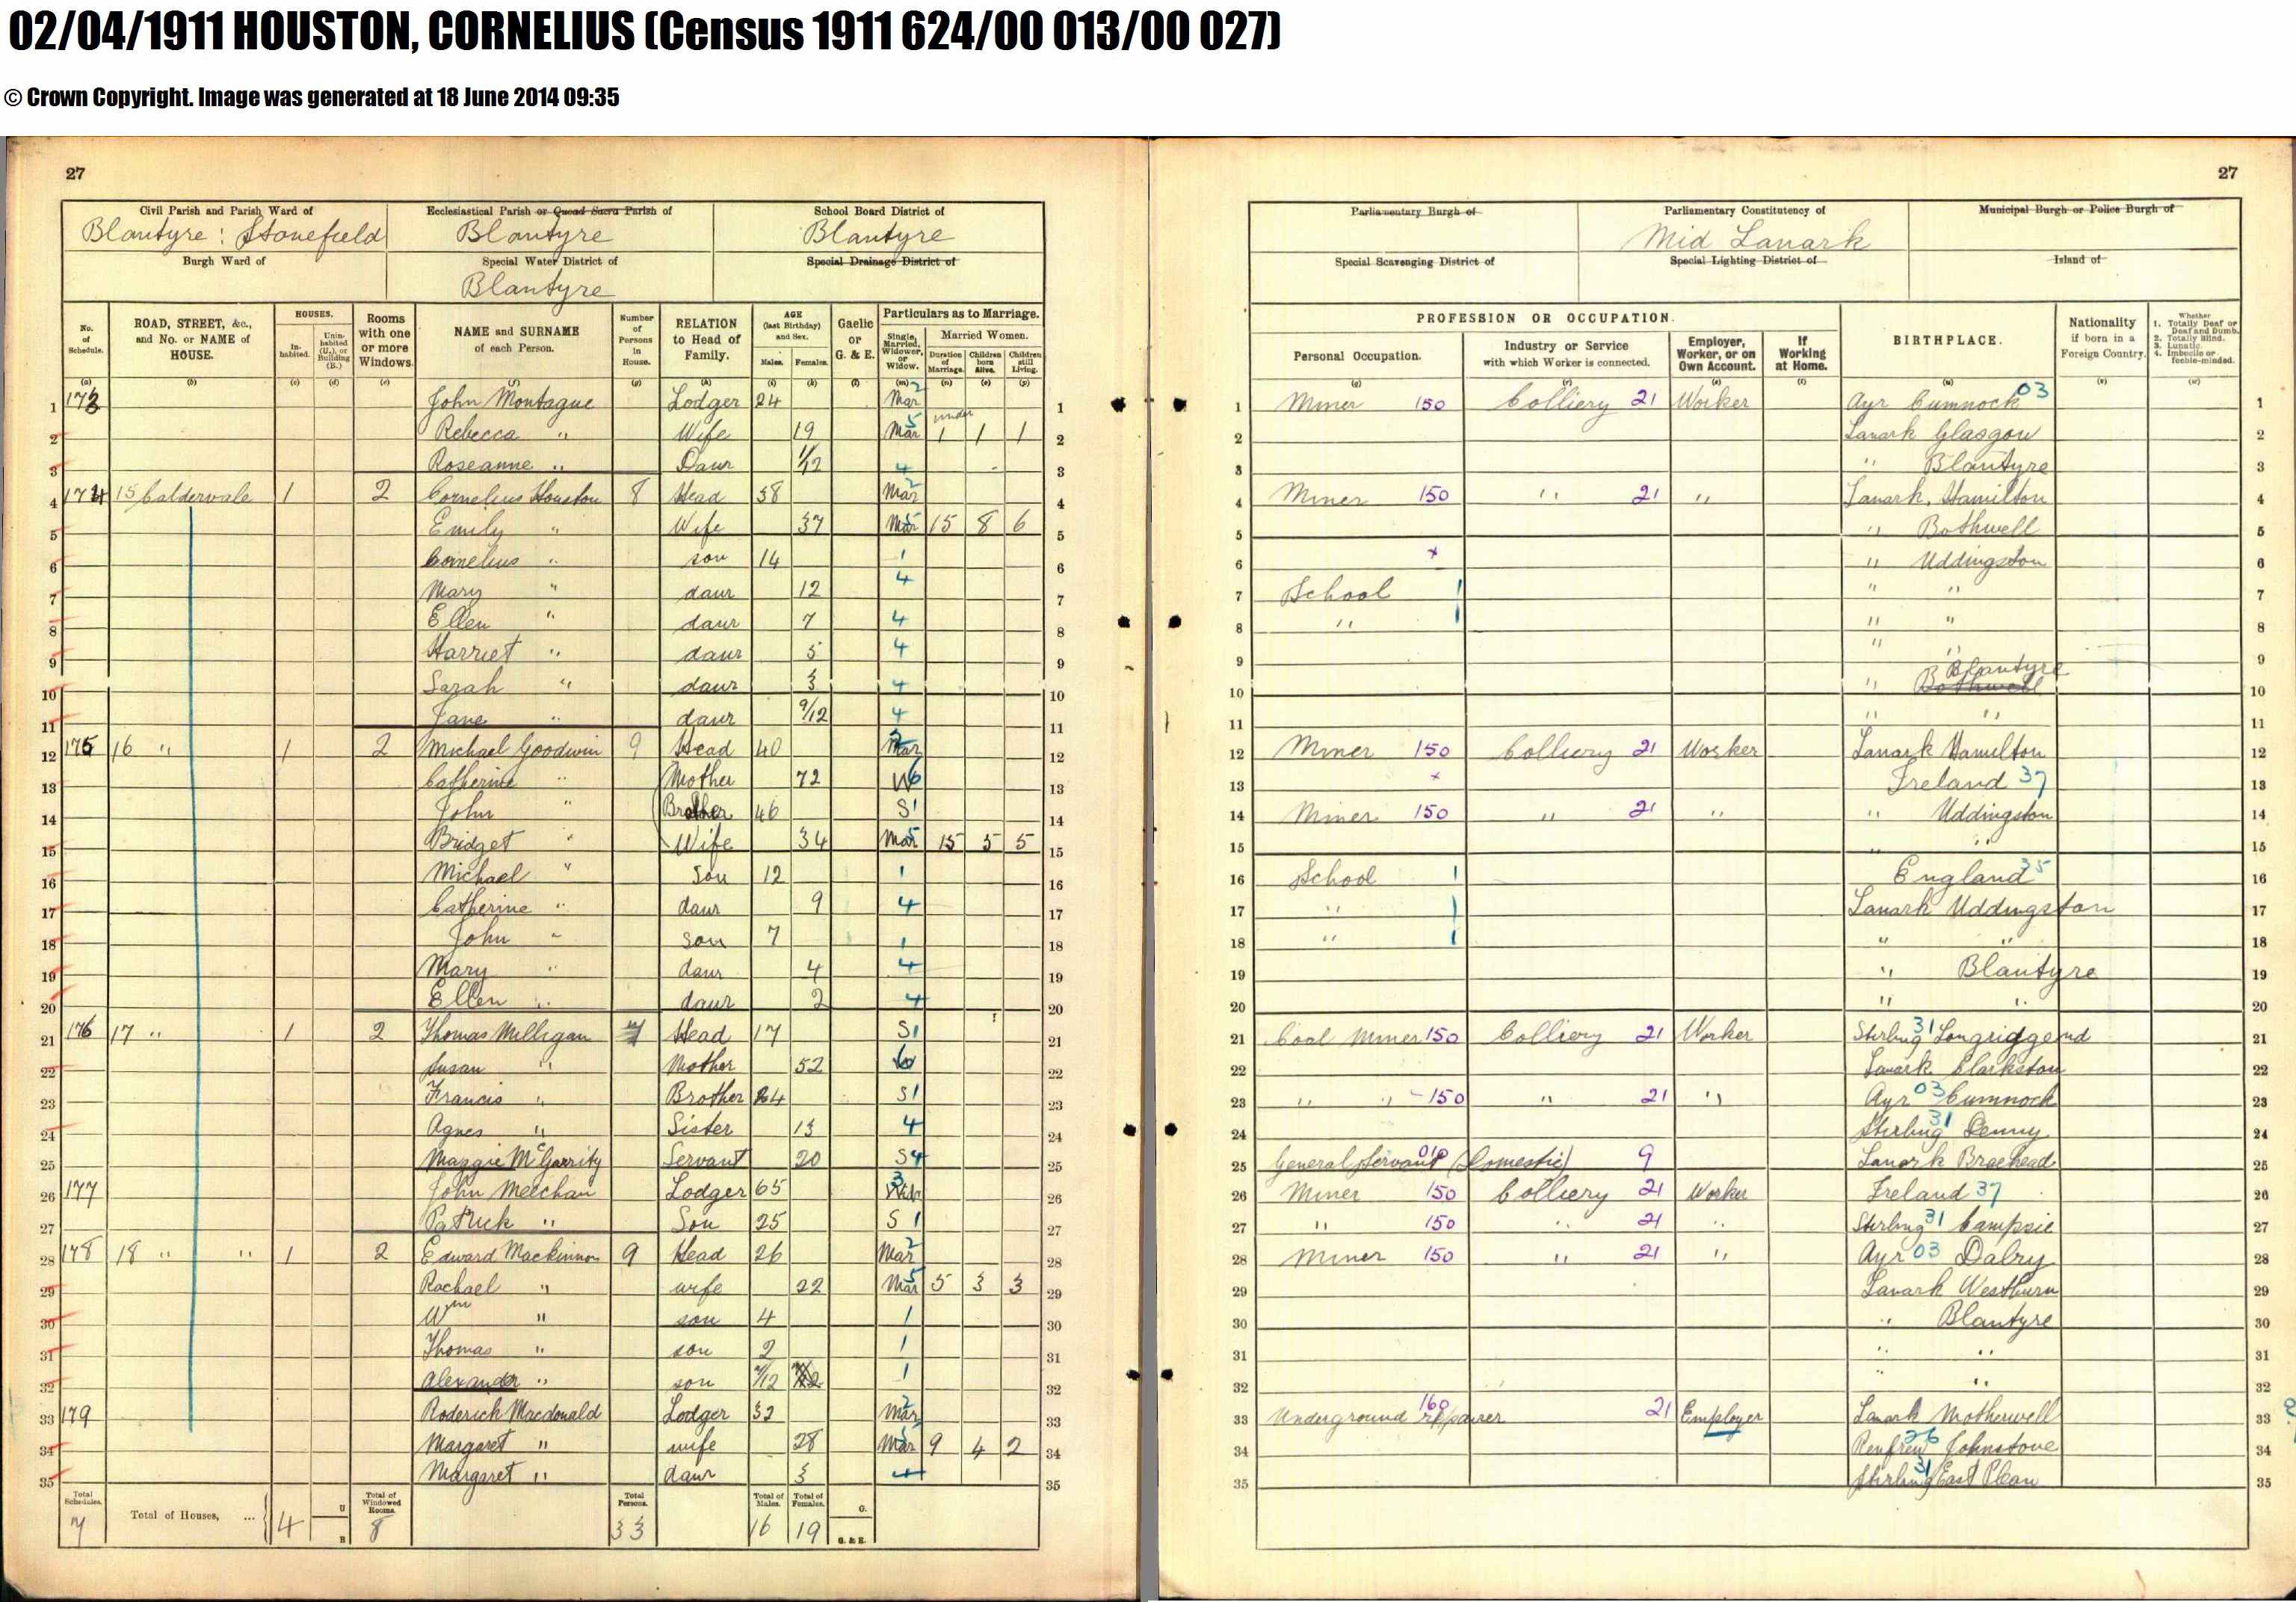 02/04/1911 HOUSTON, CORNELIUS (Census 1911 624/00 013/00 027)
© Crown Copyright. Image was generated at 18 June 2014 09:35
27
27
Civil Parish and Parish Ward of
Blantyre : Stonefield
Ecclesiastical Parish or Quoad Sacra Parish of
Blantyre
School Board District of
Blantyre
Burgh Ward of
Special Water District of
Blantyre
Special Drainage District of
Parliamentary Burgh of
Parliamentary Constitutency of
Mid Lanark
Municipal Burgh or Police Burgh of
Special Scavenging District of
Special Lighting District of
Island of
No. of Schedule. (a)
ROAD, STREET, &c., and No. or NAME of HOUSE. (b)
HOUSES.
Inhabited. (c)
Uninhabited (U.), or Building (B.) (d)
Rooms with one or more Windows. (e)
NAME and SURNAME of each Person. (f)
Number of Persons in House. (g)
RELATION to Head of Family. (h)
AGE (last Birthday) and Sex.
Males. (i)
Females. (k)
Gaelic or G. & E. (l)
Particulars as to Marriage.
Single, Married, Widower, or Widow. (m)
Married Women.
Duration of Marriage. (n)
Children born Alive. (o)
Children still Living. (p)
PROFESSION OR OCCUPATION.
Personal Occupation. (q)
Industry or Service with which Worker is connected. (r)
Employer, Worker, or on Own Account. (s)
If Working at Home. (t)
BIRTHPLACE. (u)
Nationality if born in a Foreign Country. (v)
Whether 1. Totally Deaf or Deaf and Dumb. 2. Totally Blind. 3. Lunatic. 4. Imbecile or feeble-minded. (w)
1 173 John Montague Lodger 24 Mar 2 1 1 Miner 150 Colliery 21 Worker Ayr Cumnock 03 1
2 Rebecca " Wife 19 Mar 5 under 1 1 1 2 2 Lanark Glasgow 2
3 Roseanne " Daur 1/12 4 3 3 " Blantyre 3
4 174 15 Caldervale 1 2 Cornelius Houston 8 Head 38 Mar 2 4 4 Miner 150 " 21 " Lanark, Hamilton 4
5 Emily " Wife 37 Mar 5 15 8 6 5 5 " Bothwell 5
6 Cornelius " son 14 1 6 6 x " Uddingston 6
7 Mary " daur 12 4 7 7 School 1 " " 7
8 Ellen " daur 7 4 8 8 " 1 " " 8
9 Harriet " daur 5 4 9 9 " " 9
10 Sarah " daur 3 4 10 10 " Bothwell Blantyre 10
11 Jane " daur 9/12 4 11 11 " " 11
12 175 16 " 1 2 Michael Goodwin 9 Head 40 Mar 2 12 12 Miner 150 Colliery 21 Worker Lanark Hamilton 12
13 Catherine " Mother 72 W 6 13 13 x Ireland 37 13
14 John " Brother 46 S 1 14 14 Miner 150 " 21 " " Uddingston 14
15 Bridget " Wife 34 Mar 5 15 5 5 15 15 " " 15
16 Michael " Son 12 1 16 16 School 1 England 35 16
17 Catherine " daur 9 4 17 17 " 1 Lanark Uddingston 17
18 John " son 7 1 18 18 " 1 " " 18
19 Mary " daur 4 4 19 19 " Blantyre 19
20 Ellen " daur 2 4 20 20 " " 20
21 176 17 " 1 2 Thomas Milligan 7 Head 17 S 1 21 21 Coal Miner 150 Colliery 21 Worker Stirling 31 Longriggend 21
22 Susan " Mother 52 6 22 22 Lanark Clarkston 22
23 Francis " Brother 24 S 1 23 23 " " 150 " 21 " Ayr 03 Cumnock 23
24 Agnes " Sister 13 4 24 24 Stirling 31 Denny 24
25 Maggie McGarrity Servant 20 S 4 25 25 General Servant (Domestic) 9 Lanark Braehead 25
26 177 John Meechan Lodger 65 Widr 3 26 26 Miner 150 Colliery 21 Worker Ireland 37 26
27 Patrick " Son 25 S 1 27 27 " 150 " 21 " Stirling 31 Campsie 27
28 178 18 " " 1 2 Edward Mackinnon 9 Head 26 Mar 2 28 28 Miner 150 " 21 " Ayr 03 Dalry 28
29 Rachael " wife 22 Mar 5 5 3 3 29 29 Lanark Westburn 29
30 Wm " son 4 1 30 30 " Blantyre 30
31 Thomas " son 2 1 31 31 " " 31
32 Alexander " son 7/12 1 32 32 " " 32
33 179 Roderick Macdonald Lodger 32 Mar 2 33 33 Underground repairer 160 21 Employer Lanark Motherwell 33
34 Margaret " wife 28 Mar 5 9 4 2 34 34 Renfrew 26 Johnstone 34
35 Margaret " daur 3 4 35 35 Stirling 31 East Plean 35
Total Schedules. 7
Total of Houses, ... 4
U
B
Total of Windowed Rooms. 8
Total Persons. 33
Total of Males. 16
Total of Females. 19
G.
G. & E.